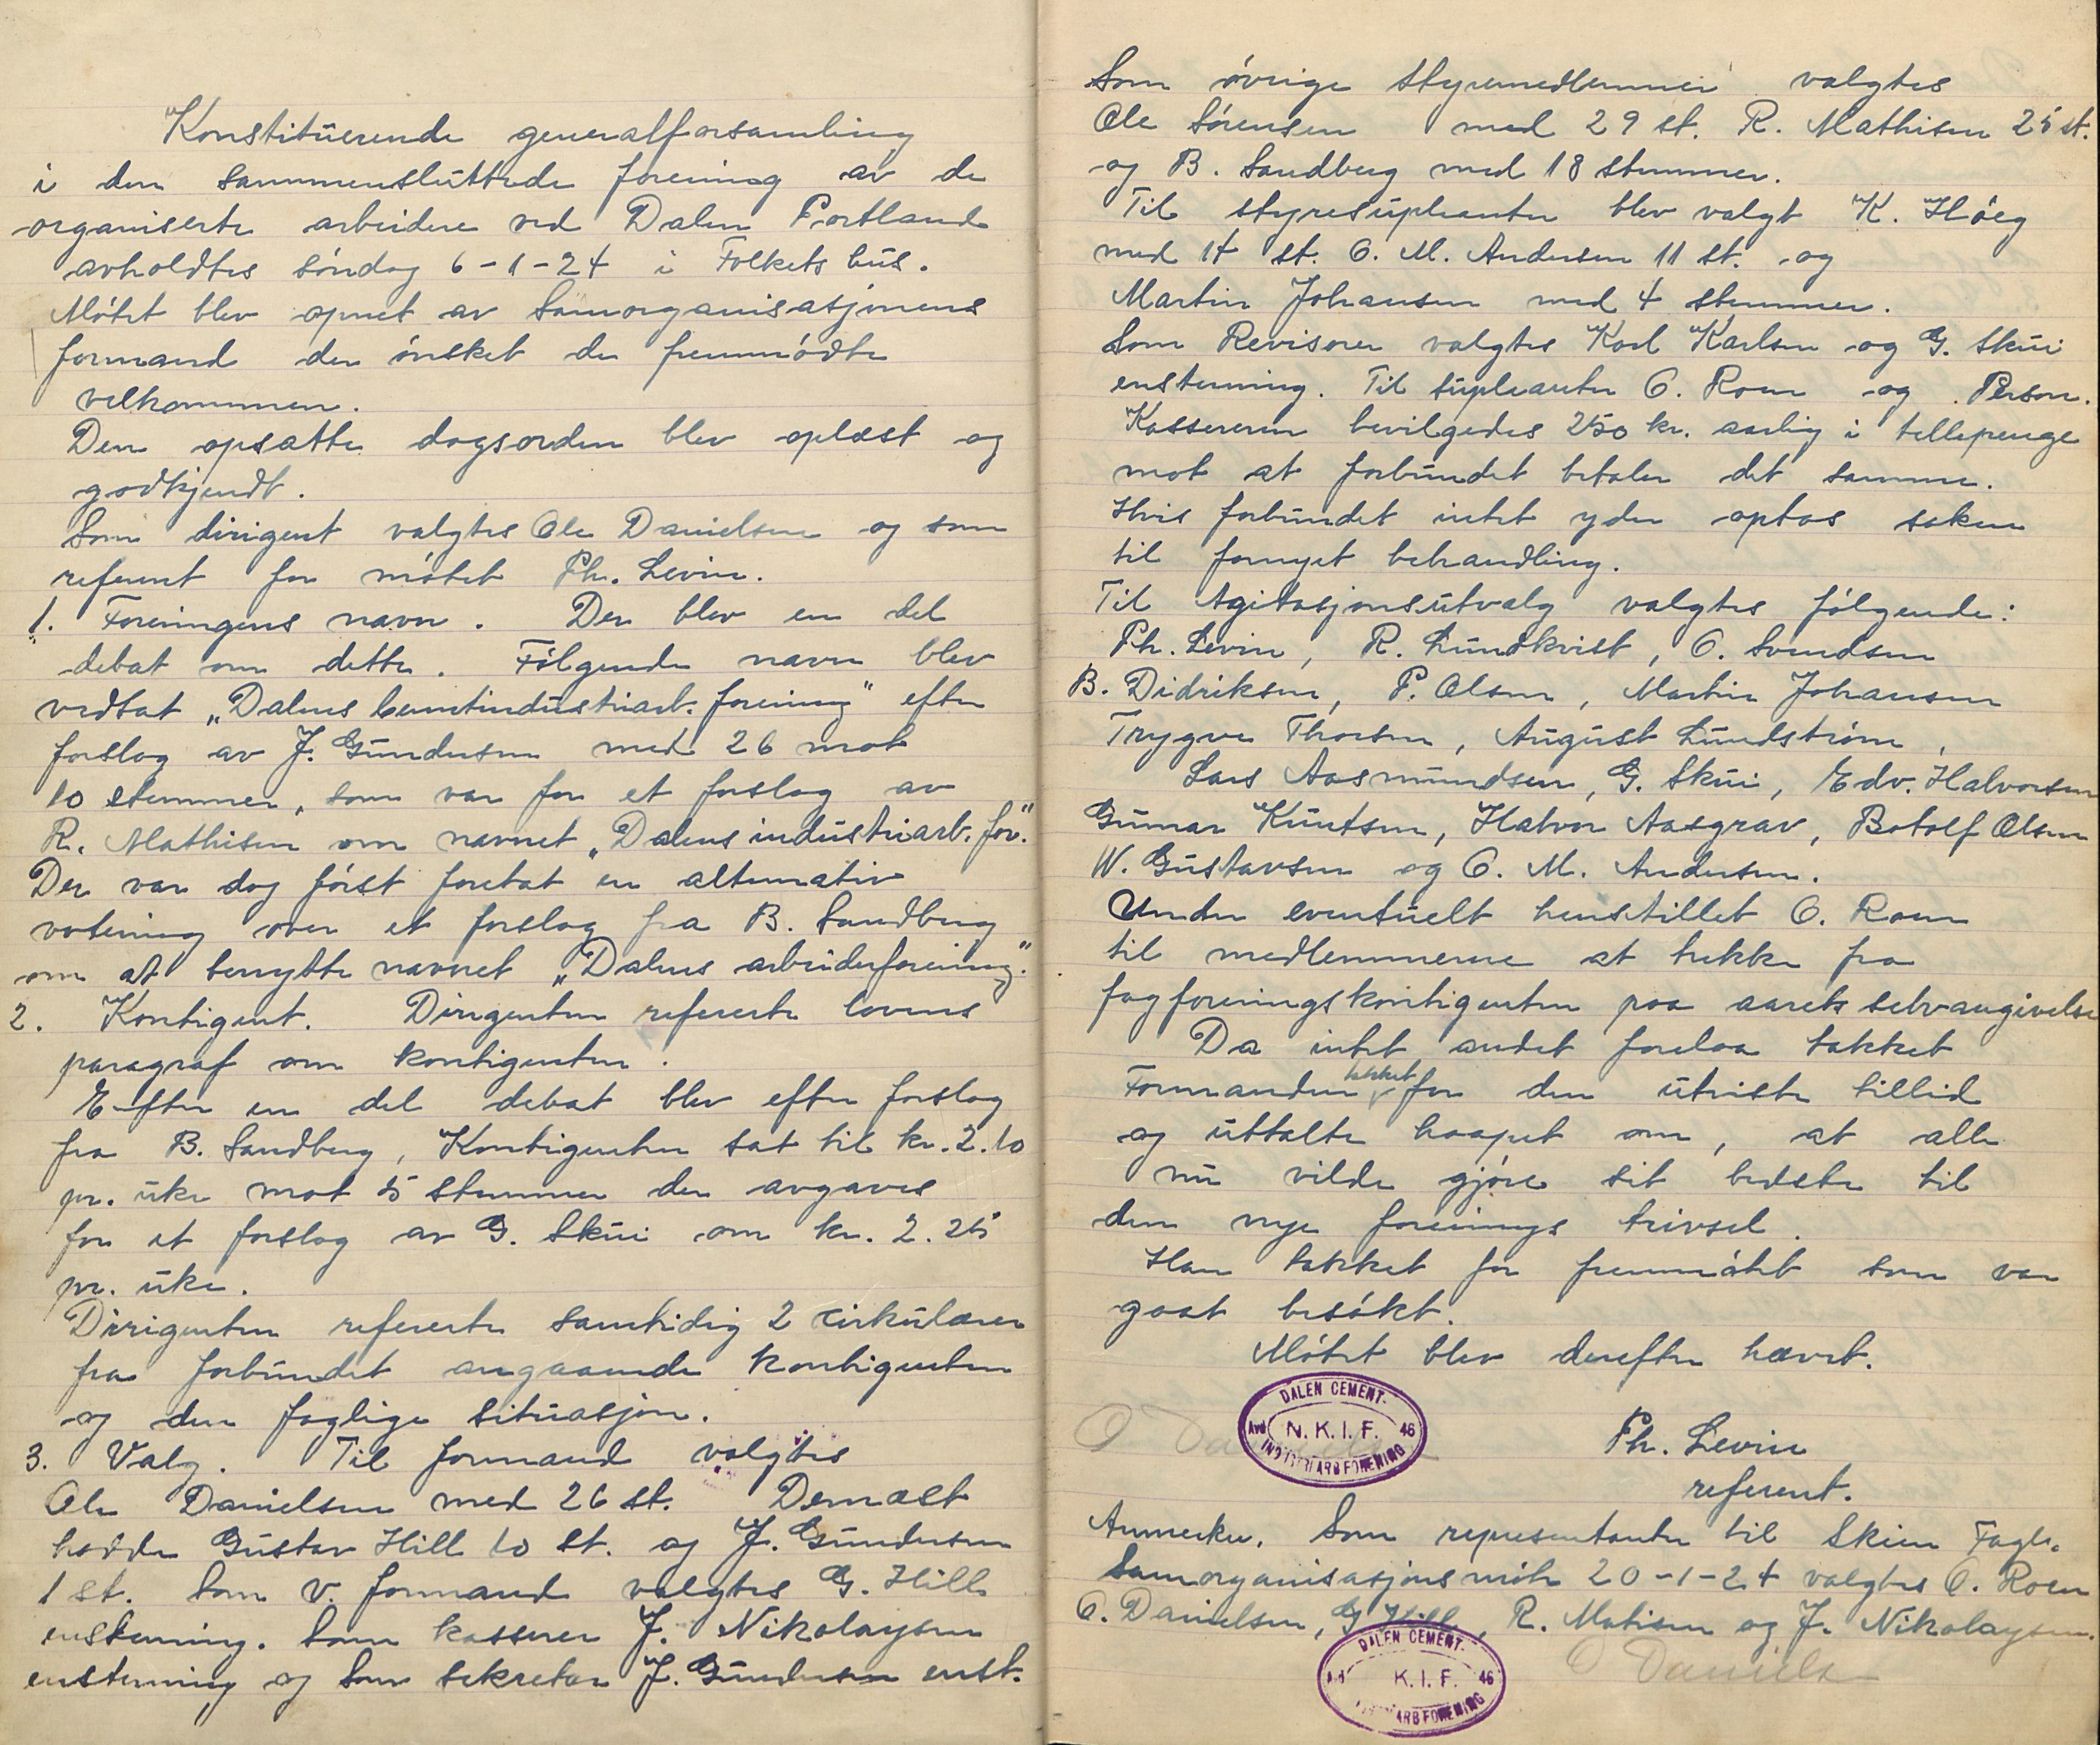 Konstituerende generalforsamling
i den sammensluttede forening av de
organiserte arbeidere ved Dalen Portland
avholdtes söndag 6-1-24 i Folkets hus.
Mötet blev åpnet av Samorganisasjonens
formand der önsket de fremmödte
velkommen.
Den opsatte dagsorden blev oplæst og
godkjendt.
Som dirigent valgtes Ole Danielsen og som
referent for mötet Ph. Levin.
1. Foreningens navn. Der blev en del
debat om dette. Fölgende navn blev
vedtat „Dalens Cementindustriarb. forening" efter
forslag av J. Gundersen med 26 mot
10 stemmer, som var for et forslag av
R. Mathisen om navnet „Dalens industriarb. for."
Der var dog först foretat en alternativ
votering over et forslag fra B. Sandberg
om at benytte navnet „Dalens arbeiderforening".
2. Kontigent. Dirigenten refererte lovens
paragraf om kontigenten.
Efter en del debat blev efter forslag
fra B. Sandberg, Kontigenten sat til kr. 2.10
pr. uke mot 15 stemmer der avgaves
for et forslag av G. Skui om kr. 2.25
pr. uke.
Dirigenten refererte samtidig 2 cirkulærer
fra forbundet angaaende kontigenten
og den faglige situasjon.
3. Valg. Til formand valgtes
Ole Danielsen med 26 st. Dernæst
hadde Gustav Hill 10 st. og J. Gundersen
1 st. Som v. formand valgtes G. Hill
enstemmig. Som kasserer J. Nikolaysen
enstemmig og som sekretær J. Gundersen enst.
Som övrige styremedlemmer valgtes
Ole Sörensen med 29 st. R. Mathisen 25 st.
og B. Sandberg med 18 stemmer.
Til styresupleanter blev valgt K. Höeg
med 14 st. O. M. Andersen 11 st. og
Martin Johansen med 4 stemmer.
Som Revisorer valgtes Karl Karlsen og G. Skui
enstemmig. Til supleanter O. Roen og Person.
Kassereren bevilgedes 250 kr. aarlig i tellepenge
mot at forbundet betaler det samme.
Hvis forbundet intet yder optas saken
til fornyet behandling.
Til Agitasjonsutvalg valgtes fölgende:
Ph. Levin, R. Lundkvist, O. Svendsen
B. Didriksen, P. Olsen, Martin Johansen
Trygve Thorsen, August Lundström,
Lars Aasmundsen, G. Skui, Edv. Halvorsen
Gunnar Knutsen, Halvor Aasgrav, Botolf Olsen
W. Gustavsen og O. M. Andersen.
Under eventuelt henstillet O. Roen
til medlemmerne at trekke fra
fagforeningskontigenten paa aarets selvangivelse
Da intet andet forelaa takket
Formanden takket for den utviste tillid
og uttalte haapet om, at alle
nu vilde gjöre sit bedste til
den nye forenings trivsel.
Han takket for fremmötet som var
goat besökt.
Mötet blev derefter hævet.
DALEN CEMENT-
Avd N.K.I.F. 46
INDUSTRIARB FORENING
Ph. Levin
referent.
Anmerkn. Som representanter til Skien Fagl.
Samorganisasjons möte 20-1-24 valgtes O. Roen
O. Danielsen, G. Hill, R. Matisen og J. Nikolaysen.
DALEN CEMENT-
Avd K.I.F. 46
ARB FORENING
O Daniels